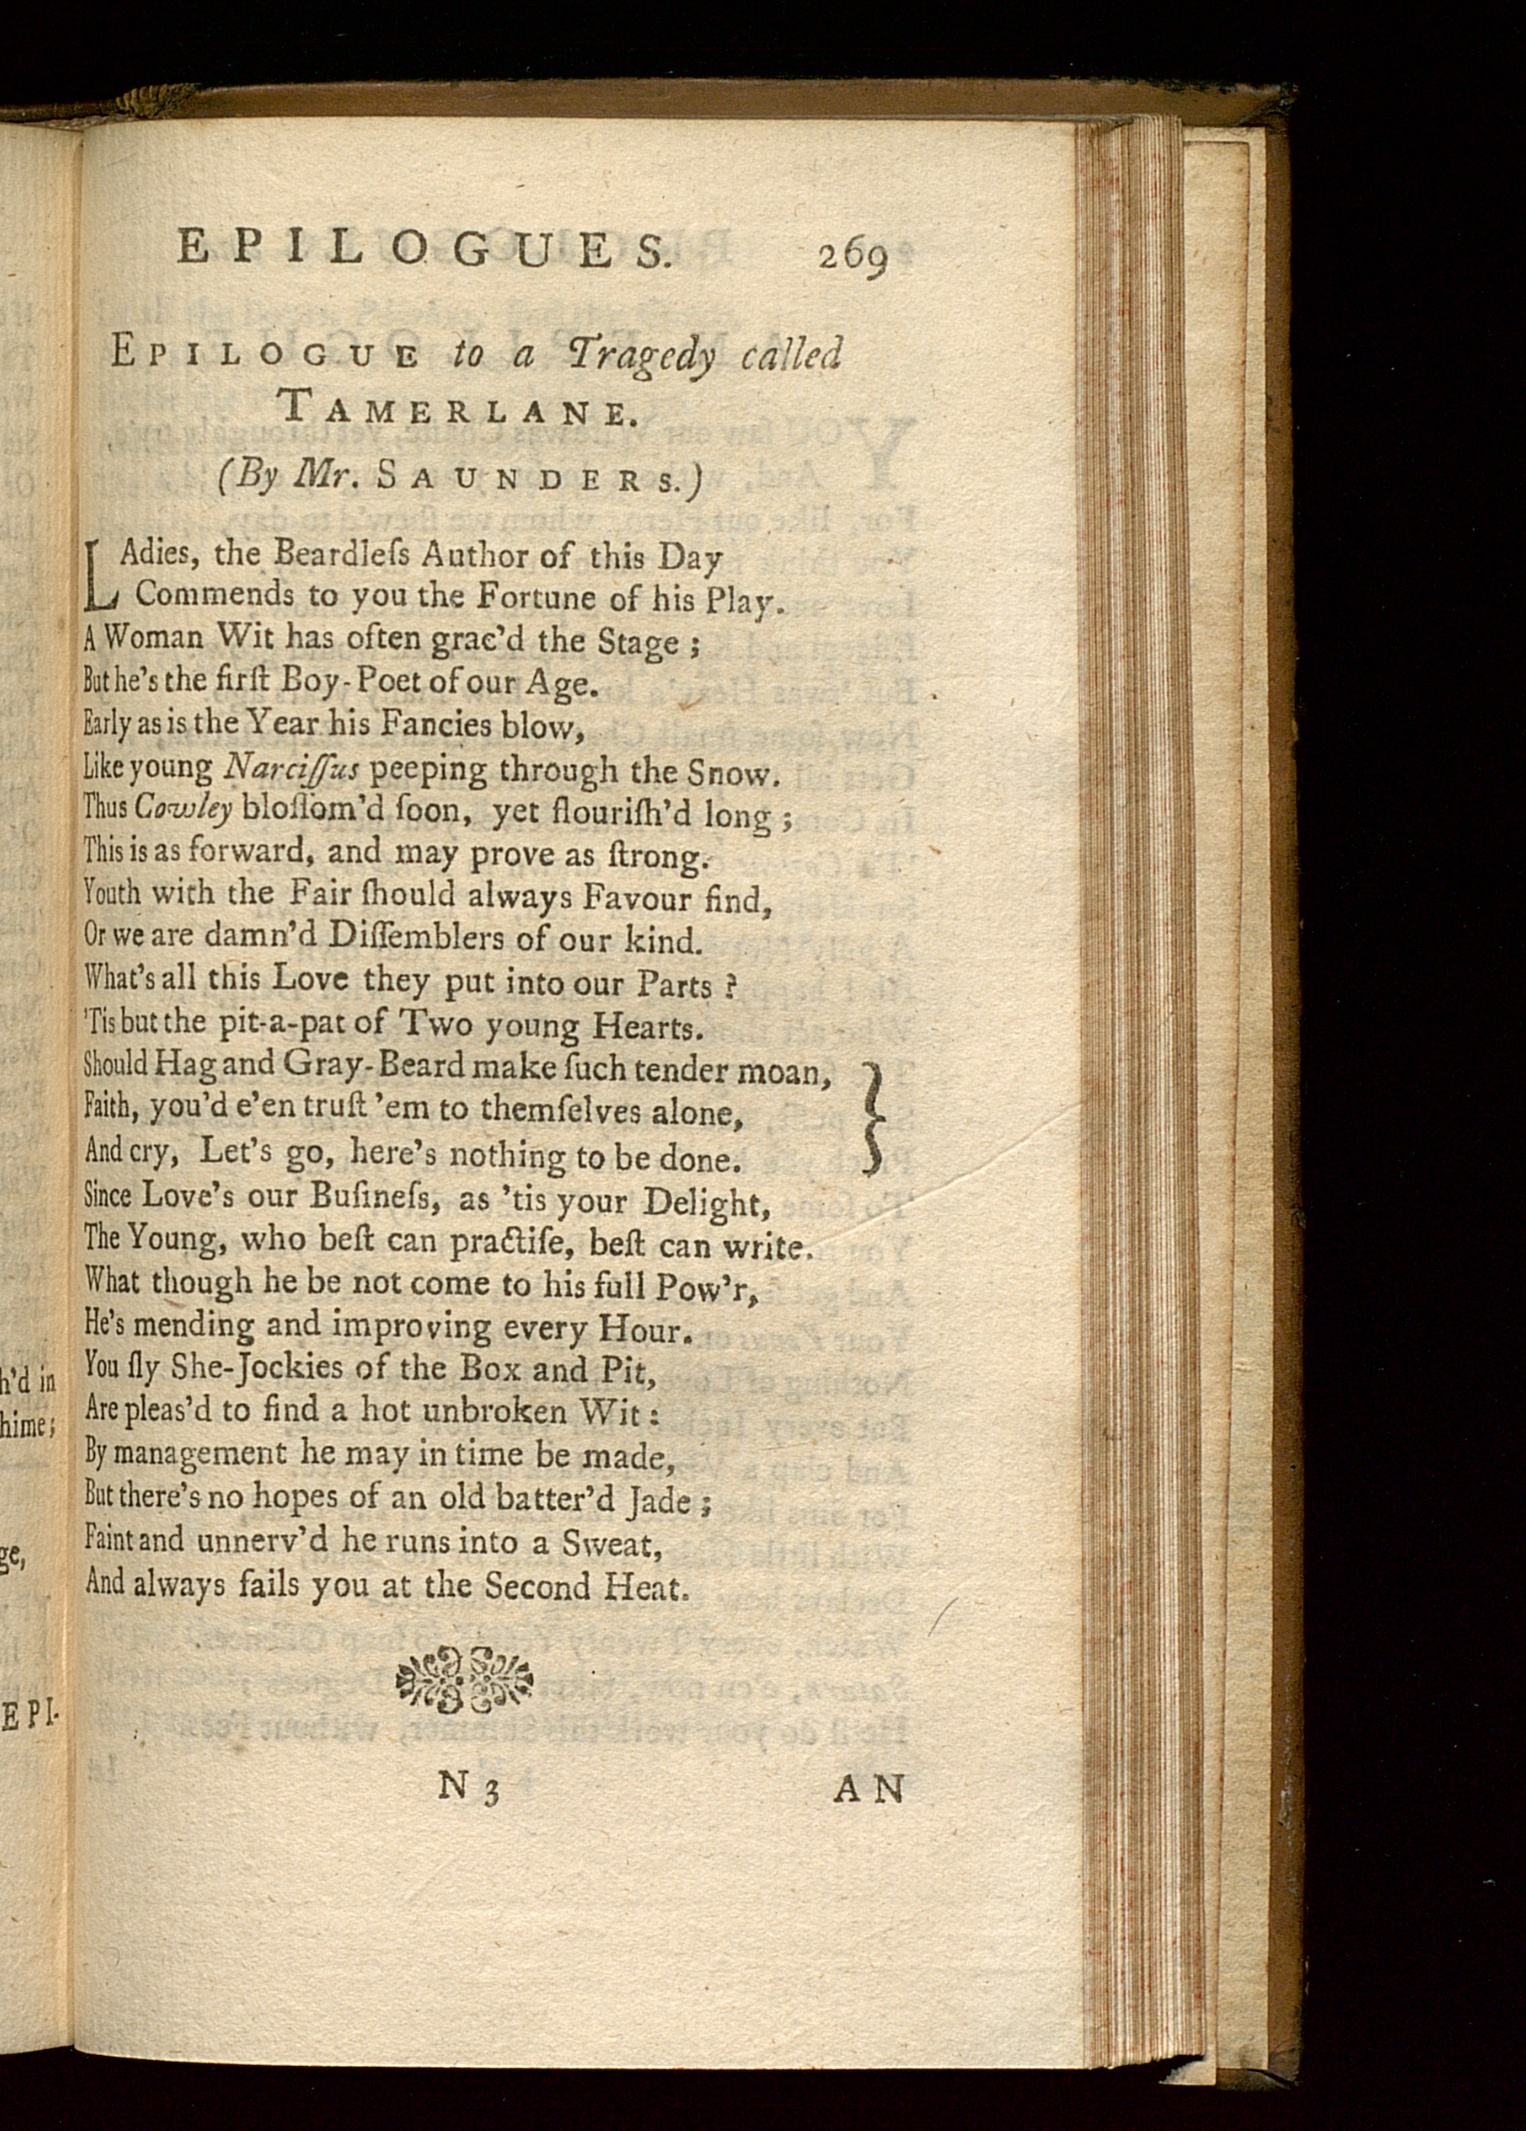 EPILOGUES. 269
EPILOGUE to a Tragedy called
TAMERLANE.
(By Mr. SAUNDERS.)
LAdies, the Beardleſs Author of this Day
Commends to you the Fortune of his Play.
A Woman Wit has often grac'd the Stage ;
But he's the firſt Boy-Poet of our Age.
Early as is the Year his Fancies blow,
Like young Narciſſus peeping through the Snow.
Thus Cowley bloſſom'd ſoon, yet flouriſh'd long ;
This is as forward, and may prove as ſtrong.
Youth with the Fair ſhould always Favour find,
Or we are damn'd Diſſemblers of our kind.
What's all this Love they put into our Parts ?
'Tis but the pit-a-pat of Two young Hearts.
Should Hag and Gray-Beard make ſuch tender moan,
Faith, you'd e'en truſt 'em to themſelves alone,
And cry, Let's go, here's nothing to be done.
Since Love's our Buſineſs, as 'tis your Delight,
The Young, who beſt can practiſe, beſt can write.
What though he be not come to his full Pow'r,
He's mending and improving every Hour.
You ſly She-Jockies of the Box and Pit,
Are pleas'd to find a hot unbroken Wit :
By management he may in time be made,
But there's no hopes of an old batter'd Jade ;
Faint and unnerv'd he runs into a Sweat,
And always fails you at the Second Heat.
N 3 AN
h'd in
hime;
ge,
EPI-